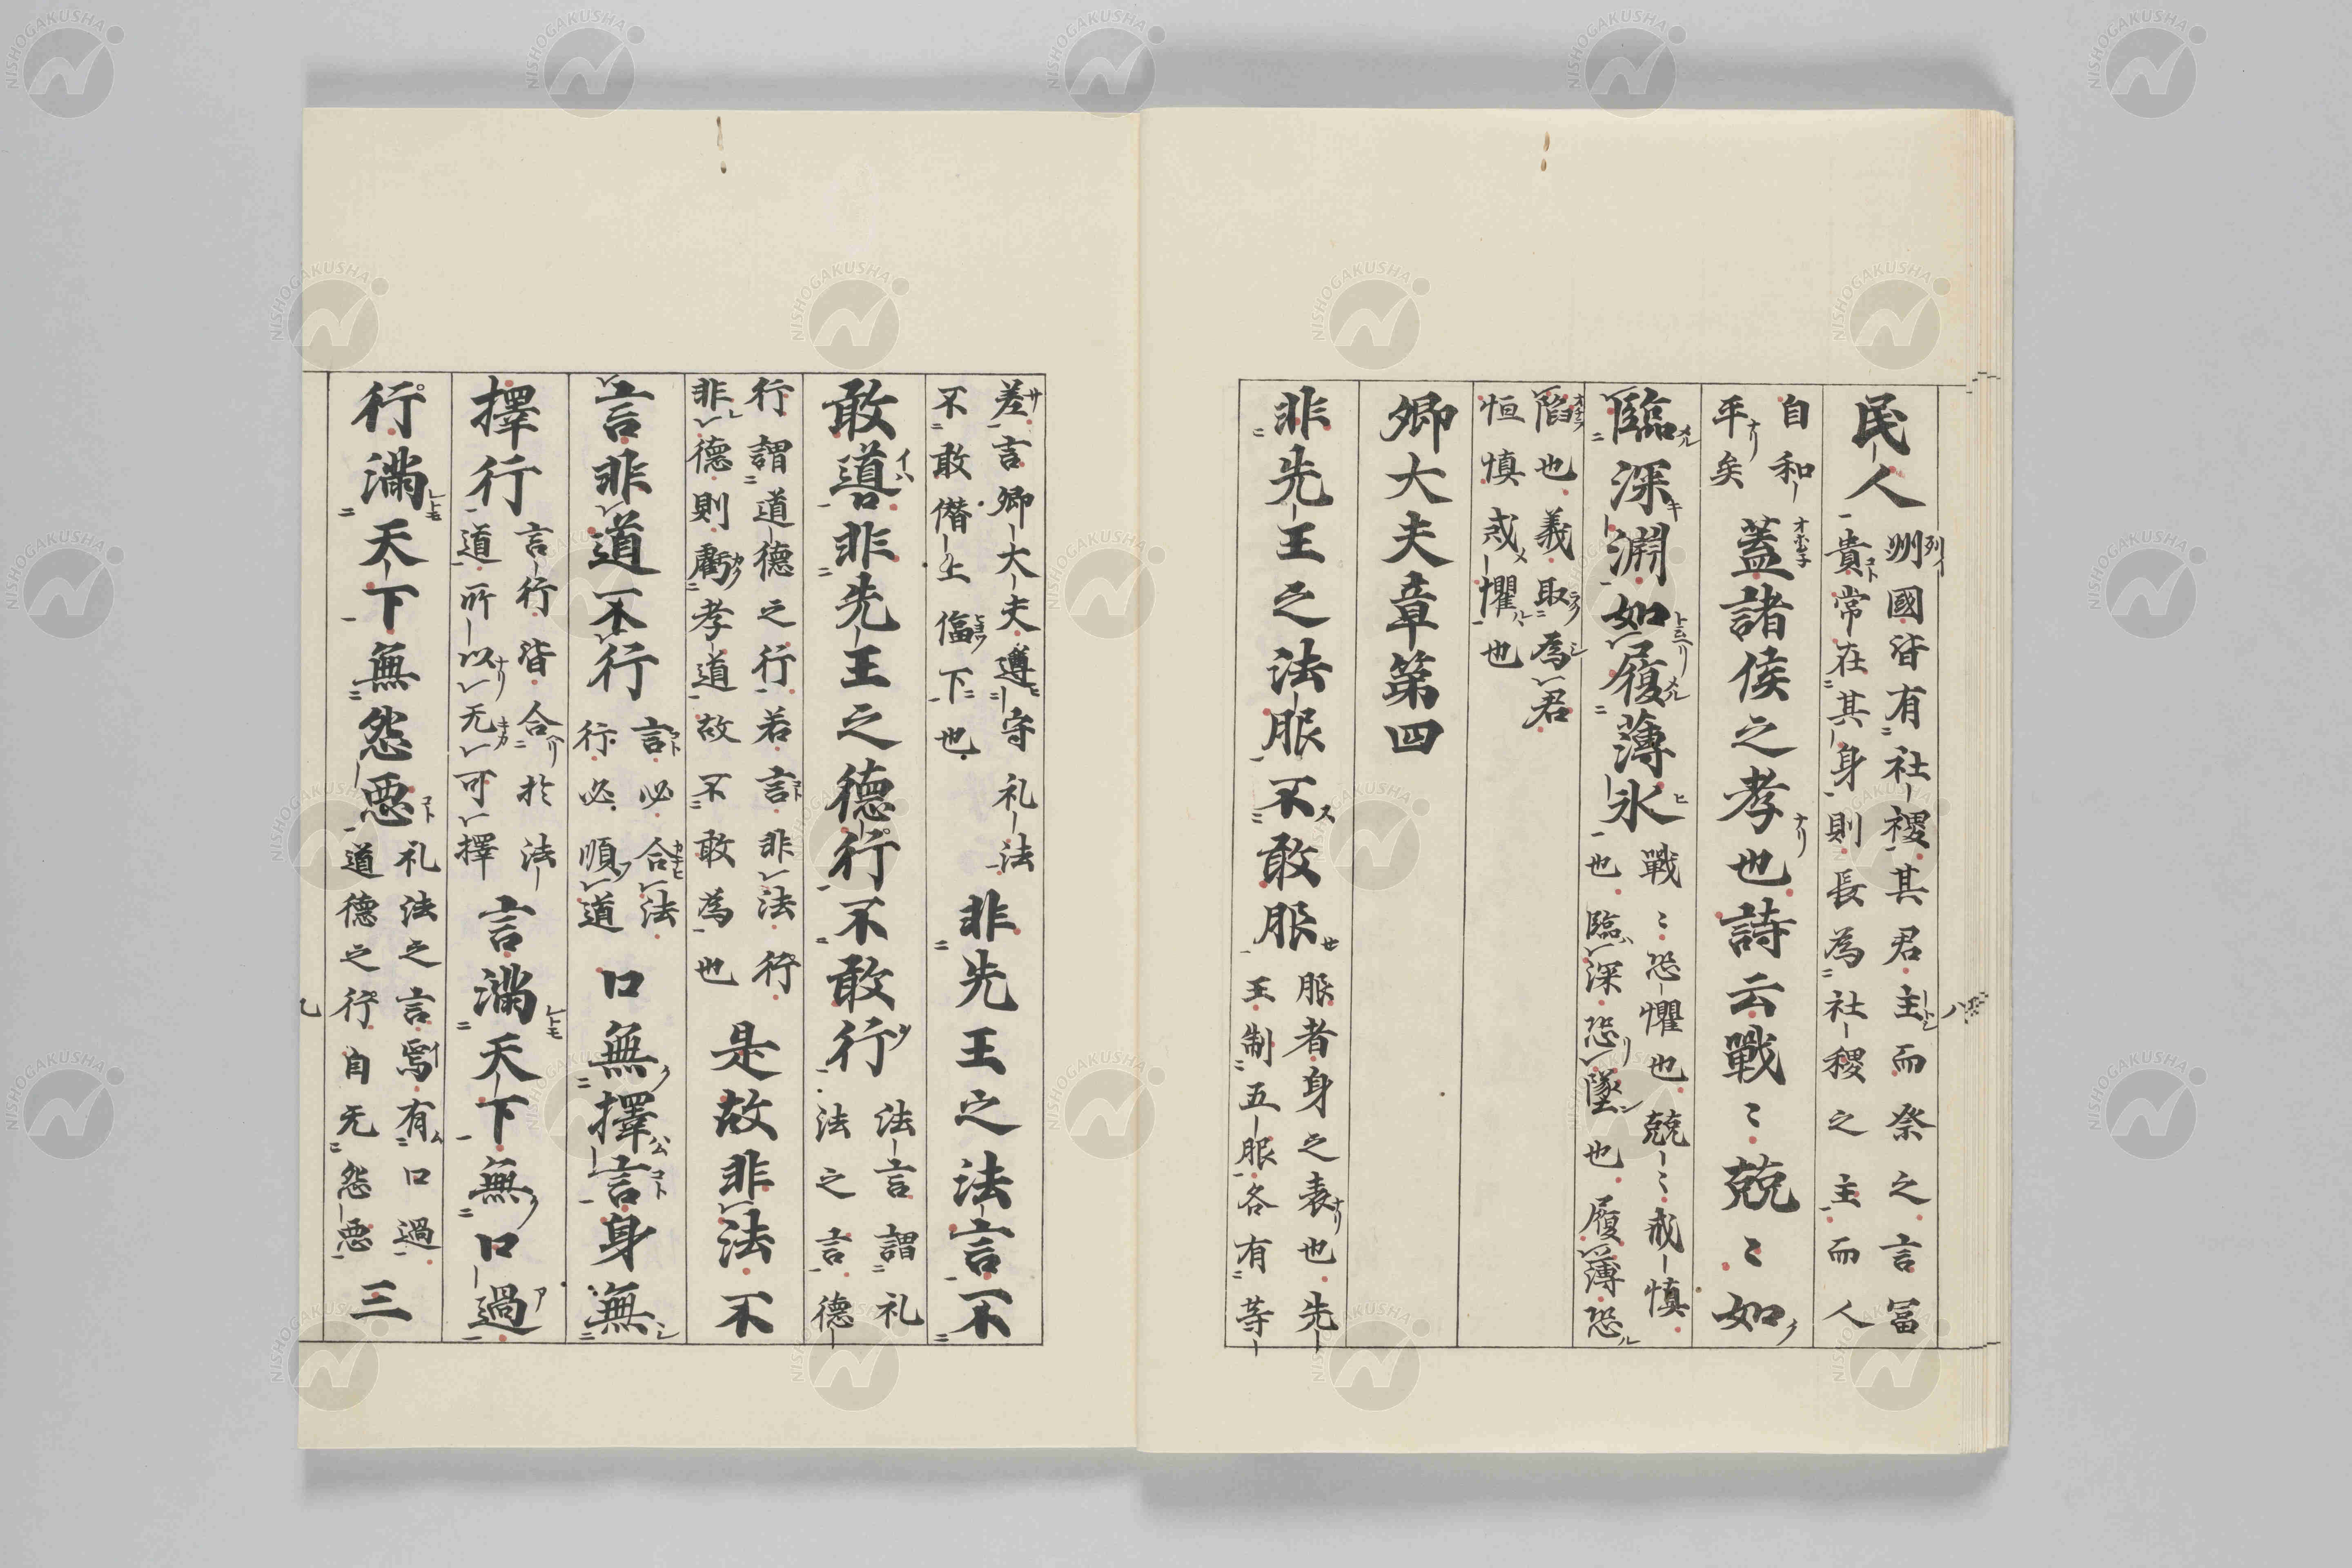 民人州國皆有社稷其君主而祭之言冨
貴常在其身則長為社稷之主而人
自和
平矣蓋諸侯之孝也詩云戰〻兢〻如
臨深淵如履薄氷戰〻恐懼也兢〻戒慎
也臨深恐墜也履薄恐
陷也義取為君
恒慎戒懼也
卿大夫章第四
非先王之法服不敢服服者身之表也先
王制五服各有等
差言卿大夫遵守礼法
不敢僣上偪下也非先王之法言不
敢道非先王之德行不敢行法言謂礼
法之言德
行謂道德之行若言非法行
非德則虧孝道故不敢為也是故非法不
言非道不行言必合法
行必順道口無擇言身無
擇行言行皆合於法
道所以无可擇言滿天下無口過
行滿天下無怨惡礼法之言焉有口過
道德之行自无怨惡三
NISHOGAKUSHA